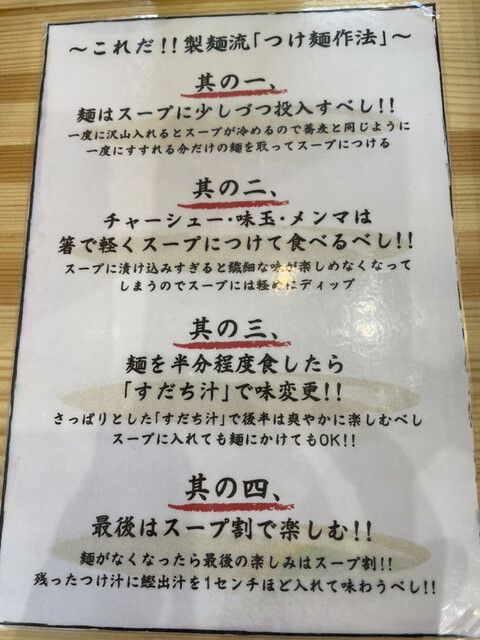 ～これだ!!製麺流「つけ麺作法」～
其の一、
麺はスープに少しづつ投入すべし!!
一度に沢山入れるとスープが冷めるので蕎麦と同じように
一度にすすれる分だけの麺を取ってスープにつける
其の二、
チャーシュー・味玉・メンマは
箸で軽くスープにつけて食べるべし!!
スープに漬け込みすぎると繊細な味が楽しめなくなって
しまうのでスープには軽めにディップ
其の三、
麺を半分程度食したら
「すだち汁」で味変更!!
さっぱりとした「すだち汁」で後半は爽やかに楽しむべし
スープに入れても麺にかけてもOK!!
其の四、
最後はスープ割で楽しむ!!
麺がなくなったら最後の楽しみはスープ割!!
残ったつけ汁に鰹出汁を1センチほど入れて味わうべし!!